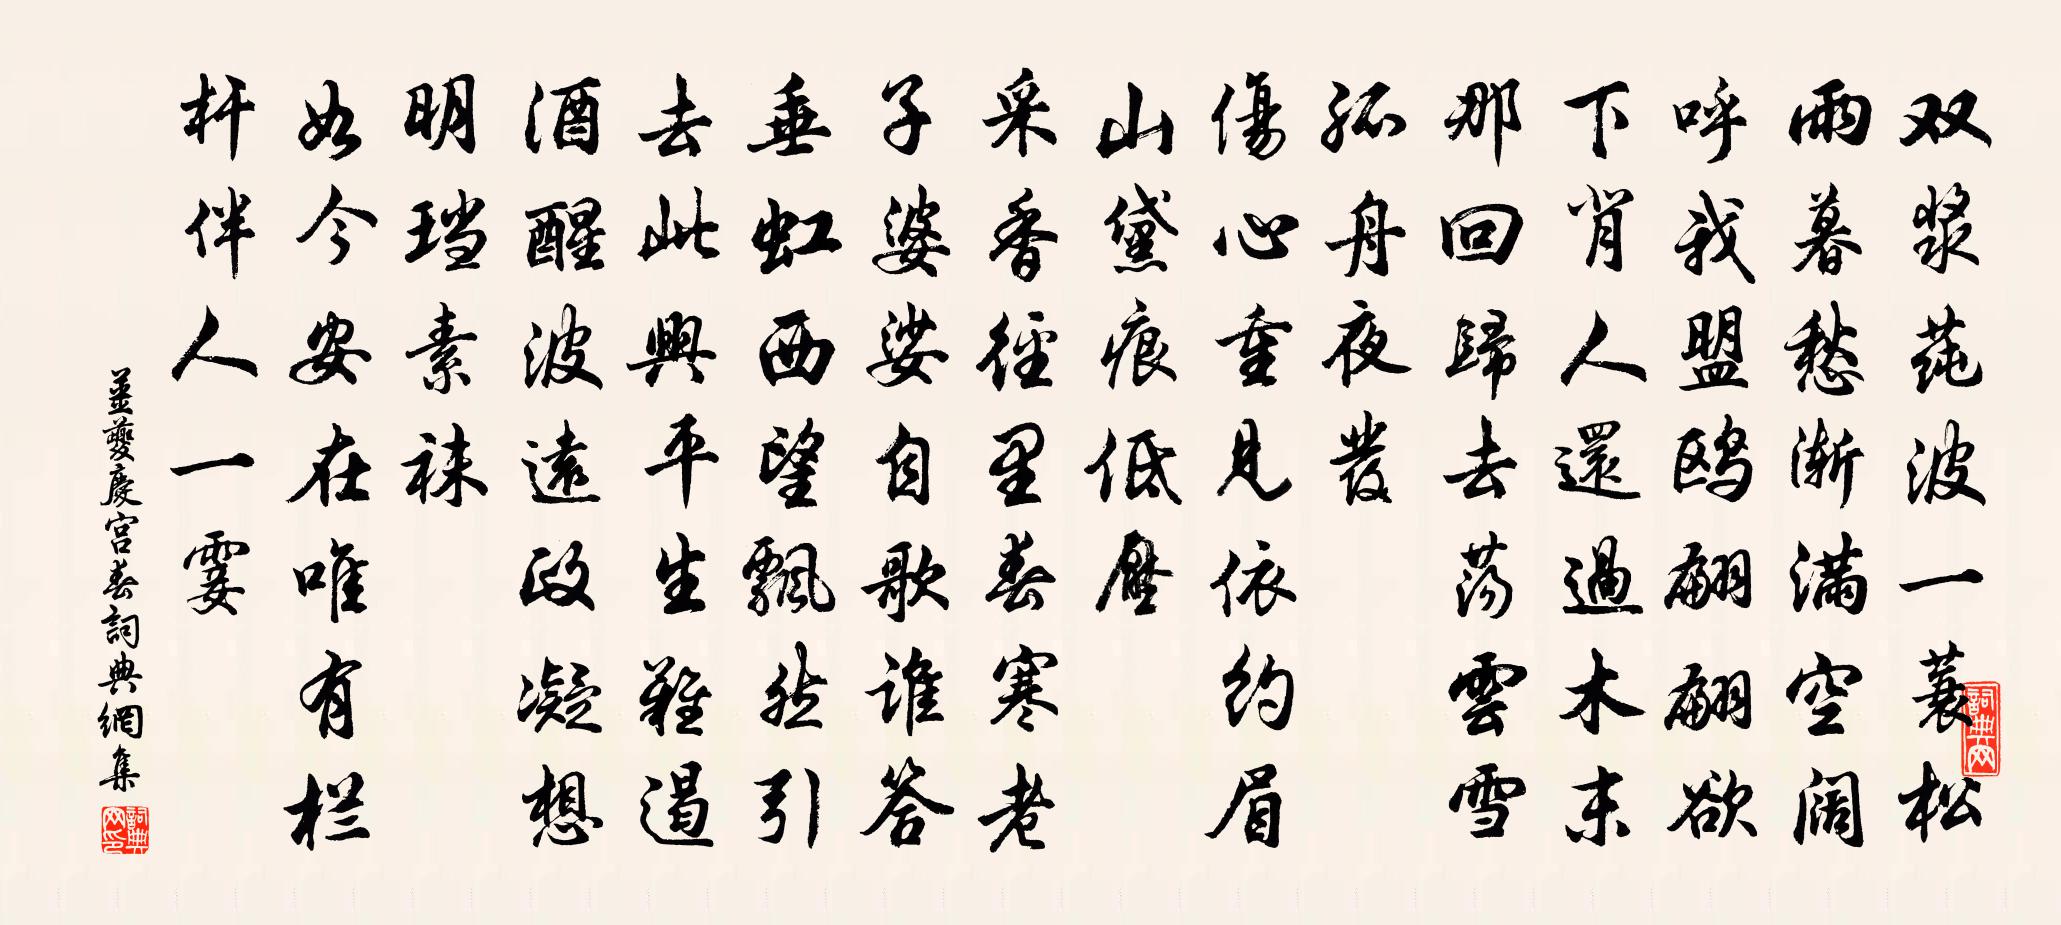 双浆莼波一蓑松
雨暮愁渐满空阔
呼我盟鸥翩翩欲
下背人還過木末
那回歸去荡雲雪
孤舟夜發
傷心重見依约眉
山黛痕低壓
采香徑里春寒老
子婆娑自歌谁答
垂虹西望飄然引
去此興平生難遏
酒醒波遠政凝想
明珰素袜
如今安在唯有栏
杆伴人一霎
姜夔慶宫春詞典網集
詞典网
詞典网印